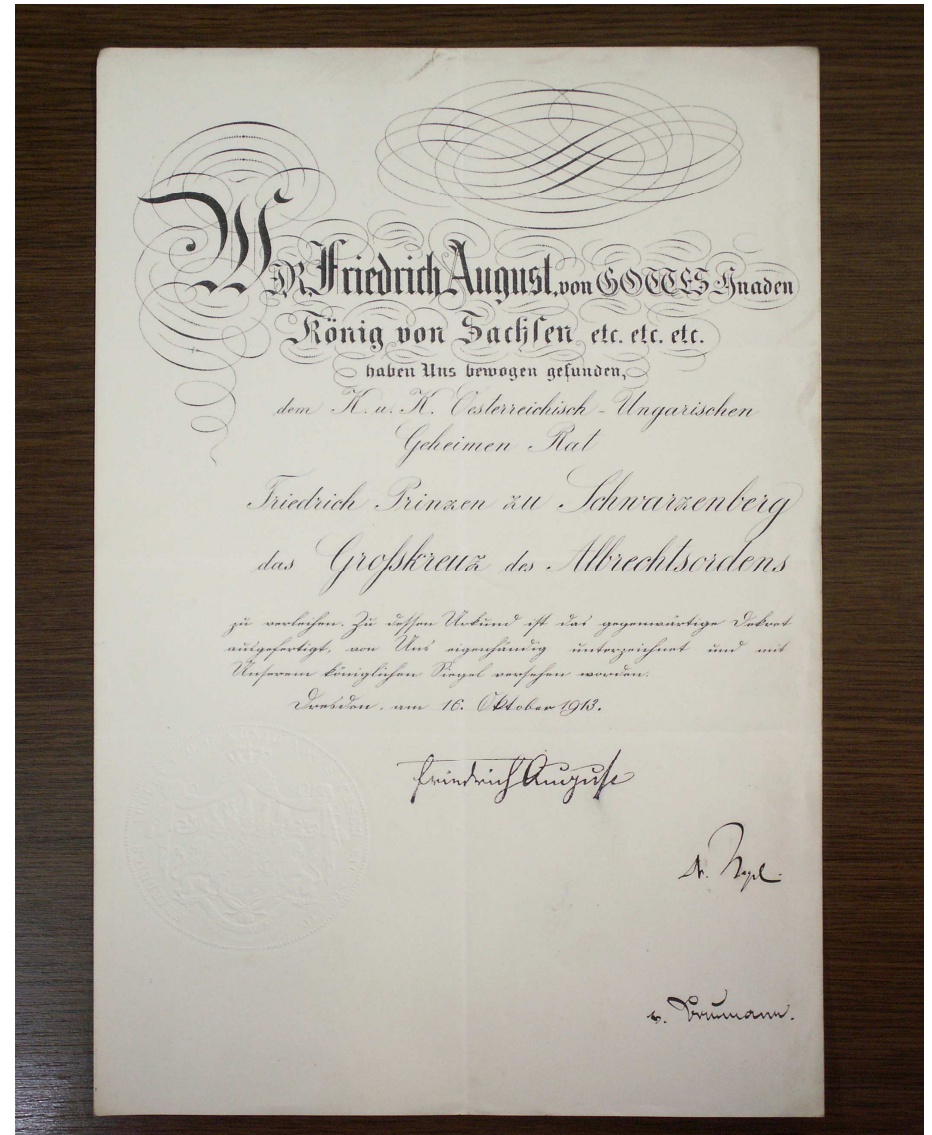 WIR, Friedrich August, von GOTTES Gnaden
König von Sachsen, etc. etc. etc.
haben Uns bewogen gefunden,
dem K. u. K. Oesterreichisch-Ungarischen
Geheimen Rat
Friedrich Prinzen zu Schwarzenberg
das Großkreuz des Albrechtsordens
zu verleihen. Zu dessen Urkund ist das gegenwärtige Dekret
ausgefertigt, von Uns eigenhändig unterzeichnet und mit
Unserem königlichen Siegel versehen worden.
Dresden, am 16. Oktober 1913.
Friedrich August
Dr.
v.